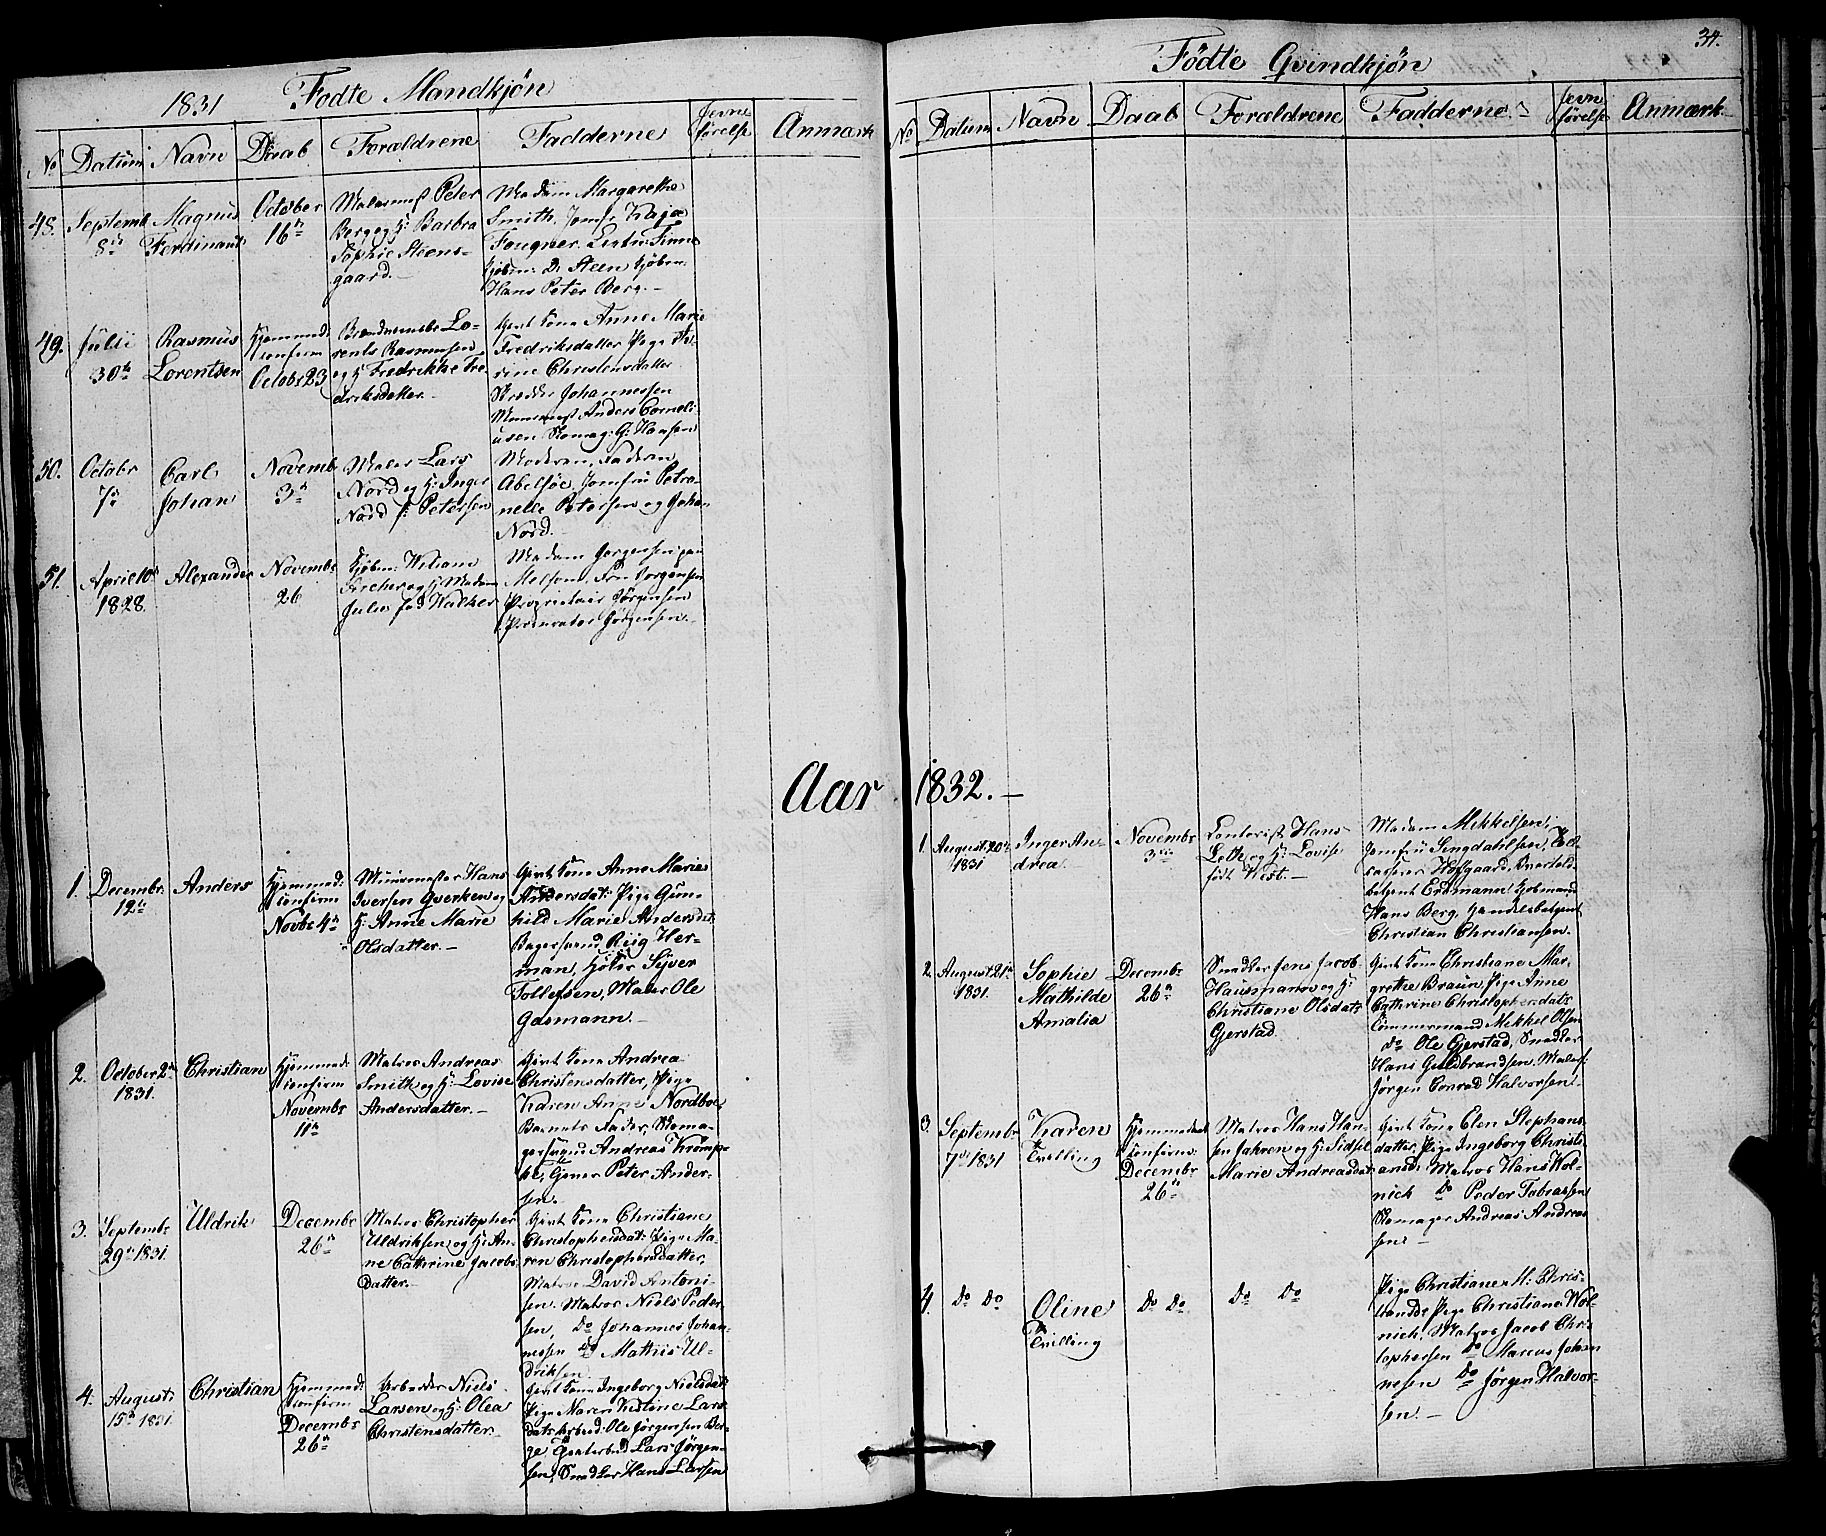 1831 Fødte Mandkjøn
No Datum Navn Daab Forældrene Fadderne Jevnførelse Anmærk
48.
Septemb
8de
Magnus
Ferdinant
October
16n
Peter
Berg og H: Barbra
Sophie Steens-
gaard.-
Madam Margarethe
Smith, Jomfr Kaja
Fougner
Kjøbm: D. Steen Kjøbm:
Hans Peter Berg.-
49.
Julii
30te
Rasmus
Lorentsen
Hjemmed:
confirm
Octobr 23
Lo-
rents Rasmussen
og H: Fredrikke Fre
driksdatter.-
Givt Kone Anne Marie
Fredriksdatter Pige
rine Christensdatter
Skrædder Johannessen
Anders Corneli-
usen Skomag: G: Hansen
50.
Octobr
7de
Carl
Johan
Novemb
3de
Maler Lars
Nord og H: Inger
Nord f: Petersen
Moderen, Faderen
Abelsøe, Jomfru Petro-
nelle Petersen og Johan
Nord.
51.
April 10de
1828.
Alexander
Novembr
26
Kjøbm: Wiliam
Archer og H: Madam
Julie fød Walker
Madam Jørgensen paa
Melsom, Fru Jørgensen
Proprietair Jørgensen
Procurator Jørgensen.-
Aar 1832.-
1.
Decembr.
12te
Anders
Hjemmed:
confirm
Novbr 4de
Muurmester Hans
Iversen Qverken og
H: Anne Marie
Olsdatter.-
Givt Kone Anne Marie
Andersdat: Pige Gun-
hild Marie Andersdat
Bagersvend Riig Her-
man, Sÿver
Tollefsen, Maler Ole
Gasmann.-
2.
October 2den
1831.
Christian
Hjemmed:
confirm
Novembr
11te
Matros Andreas
Smith og H: Lovise
Andersdatter.-
Givt Kone Andrea
Christensdatter, Pige
Karen Anne Nordboe,
Barnets Fader, Skoma-
gersvend Andreas
Peter Ander-
sen.
3.
Septembr
29de 1831.
Uldrik
Decembr
26de
Matros Christopher
Uldriksen og H: An-
ne Catherine Jacobs-
datter.-
Givt Kone Christiane
Christophersdat: Pige Ma-
ren Christophersdatter,
Matros David Antoni-
sen. Matros Niels Peder
sen, do Johannes Johan-
nessen do Mathiis Ul-
driksen
4.
August
15de 1831.
Christian
Hjemmed:
confirm
Decembr
26de
Arbeider Niels
Larsen og H: Olea
Christensdatter.-
Givt Kone Ingeborg Nielsdat:
Pige Maren Kistine Lars-
datr Arbeid: Ole Jørgensen Ber-
ge Lars Jørgen-
sen, Snedker Hans Larsen
34.
Fødte Qvindkjøn
No Datum Navn Daab Forældrene Fadderne Jevnførelse Anmærk
1.
August 20de
1831
Inger An-
drea
Novembr
3die
Contorist Hans
Lothe og H: Lovise
født West.-
Madam Mikkelsen,
Jomfru Singdahlsen, Told-
casserer Hofgaard,
betjent Erdmann, Kjøbmand
Hans Berg, Handelsbetjent
Christian Christiansen.
2.
August 21de
1831.
Sophie
Mathilde
Amalia
Decembr
26de
Snedker Jens Jacob
Hausmann og H:
Christiane Olsdatr
Gjerstad.
Givt Kone Christiane Mar-
grethe Braun, Pige Anne
Cathrine Christophersdatr
Tømmermand Mikkel Olsen
do Ole Gjerstad, Snedker
Hans Guldbrandsen, Malersv
Jørgen Conrad Halvorsen.
3.
Septembr
7de 1831
Karen
Tvilling
Hjemmedøbt
confirm:
Decembr
26de
Matros Hans Han-
sen Jahren og H: Sidsel
Marie Andreasdatr
Givt Kone Elen Stephans
datter, Pige Ingeborg Christi-
ansdr Matros Hans Wol-
nick do Peder Tobiassen
Skomager Andreas Andrea-
sen.-
4.
do do
Oline
Tvilling
do do
do do
Pige Christiane M: Chris-
Pige Christiane Wol-
nick, Matros Jacob Chri-
stophersen do Marcus Johan
nesen do Jørgen Halvor-
sen.-